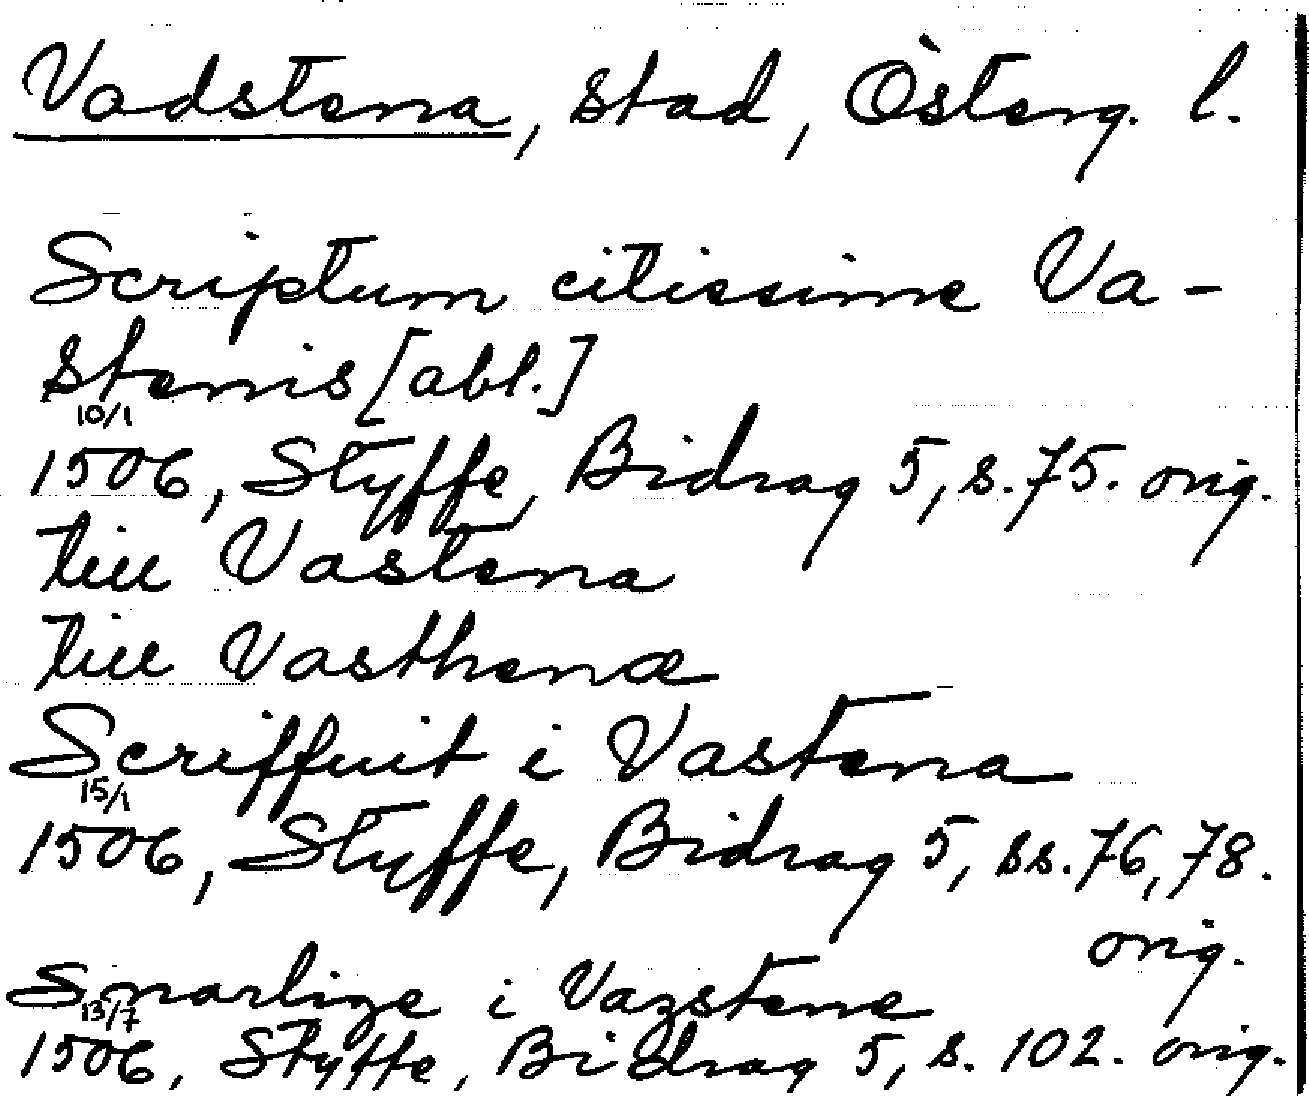 Vadstena, stad, Österg. l.
Scriptum citissime Va-
stenis [abl.]
10/1
1506, Styffe, Bidrag 5, s. 75. orig.
till Vastena
till Vasthenæ
Scriffuit i Vastena
15/1
1506, Styffe, Bidrag 5, ss. 76, 78.
orig.
Snarlige i Vazstene
13/7
1506, Styffe, Bidrag 5, s. 102. orig.